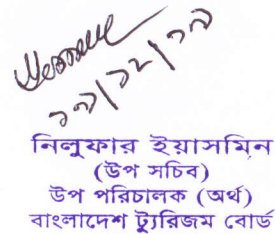 ১৭/১২/১৭
নিলুফার ইয়াসমিন
(উপ সচিব)
উপ পরিচালক (অর্থ)
বাংলাদেশ ট্যুরিজম বোর্ড